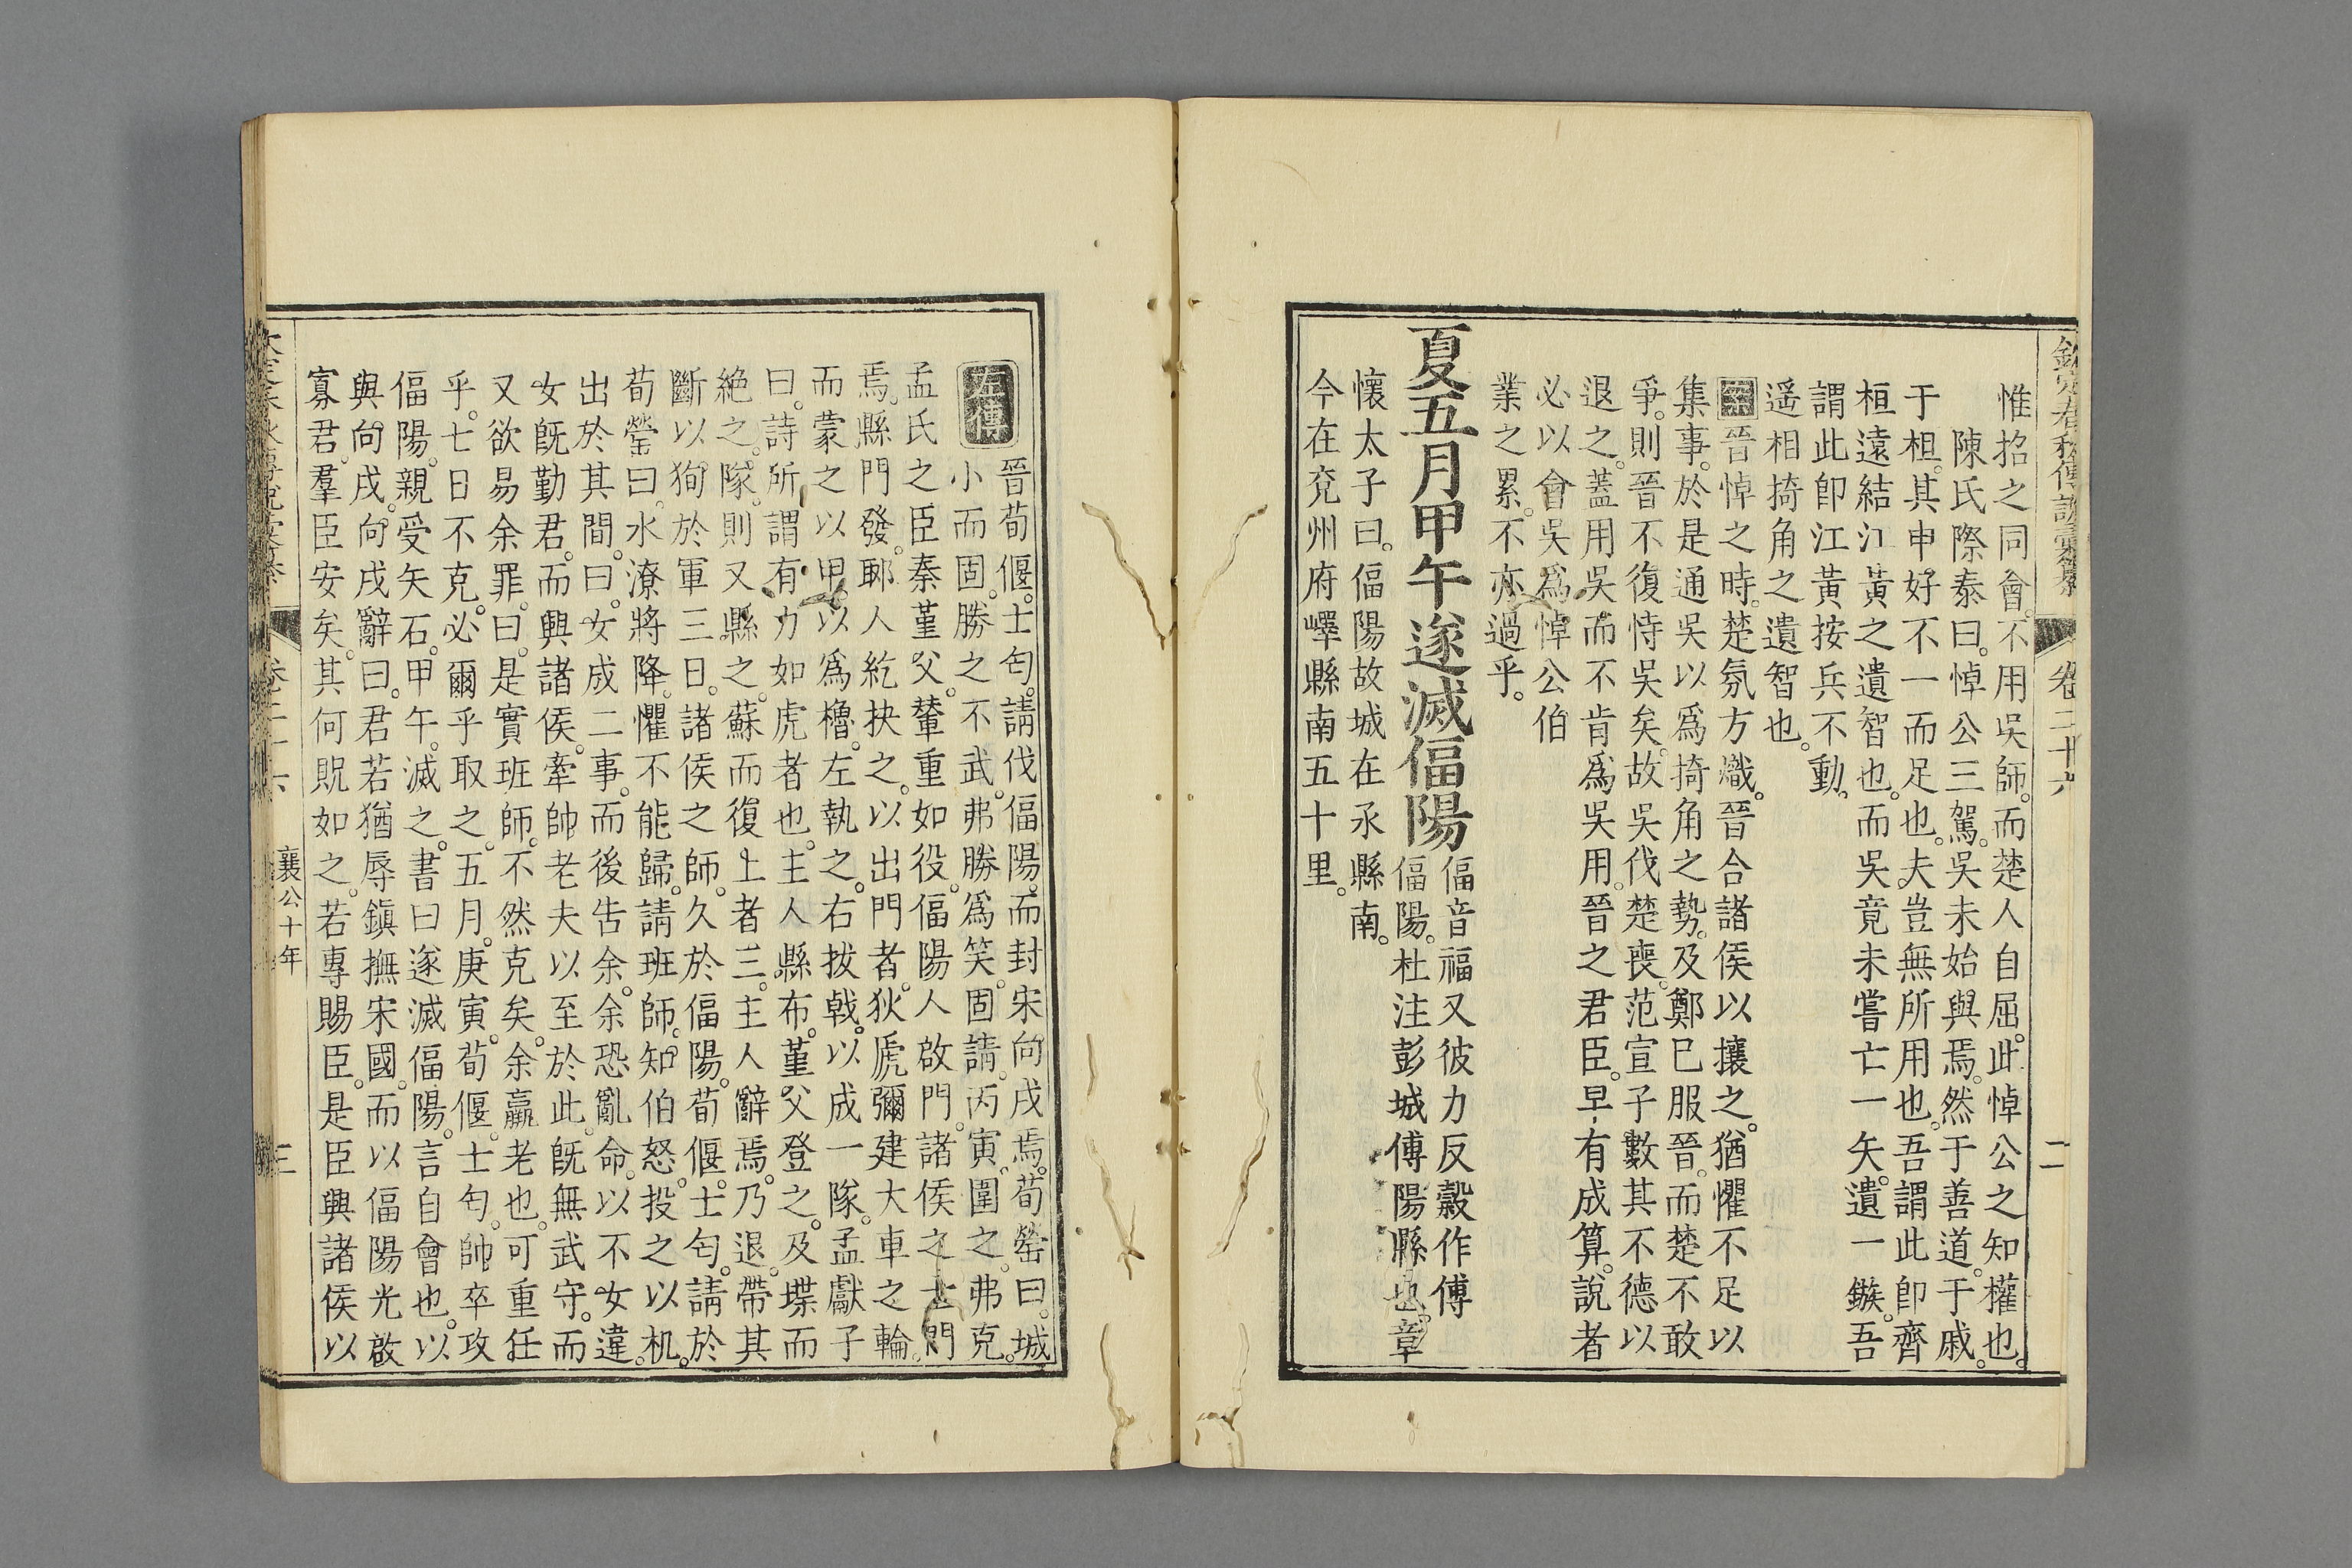 欽定春秋傳說彙纂 卷二十六 二
惟招之同會。不用吳師。而楚人自屈。此悼公之知權也。
陳氏際泰曰。悼公三駕。吳未始與焉。然于善道。于戚。
于柤。其申好不一而足也。夫豈無所用也。吾謂此卽齊
桓遠結江黃之遺智也。而吳竟未嘗亡一矢。遺一鏃。吾
謂此卽江黃按兵不動。
遥相掎角之遺智也。
案晉悼之時。楚氛方熾。晉合諸侯以攘之。猶懼不足以
集事。於是通吳以爲掎角之勢。及鄭已服晉。而楚不敢
爭。則晉不復恃吳矣。故吳伐楚喪。范宣子數其不德以
退之。蓋用吳而不肯爲吳用。晉之君臣。早有成算。說者
必以會吳爲悼公伯
業之累。不亦過乎。
夏五月甲午遂滅偪陽
偪音福又彼力反穀作傅
偪陽。杜注彭城傅陽縣也。章
懷太子曰。偪陽故城在氶縣南。
今在兗州府嶧縣南五十里。
左傳
晉荀偃。士匄。請伐偪陽。而封宋向戌焉。荀罃曰。城
小而固。勝之不武。弗勝爲笑。固請。丙寅。圍之。弗克。
孟氏之臣秦堇父。輦重如役。偪陽人啟門。諸侯之士門
焉。縣門發。郰人紇抉之。以出門者。狄虒彌建大車之輪。
而蒙之以甲。以爲櫓。左執之。右拔戟。以成一隊。孟獻子
曰。詩所謂有力如虎者也。主人縣布。堇父登之。及堞而
絕之。隊。則又縣之。蘇而復上者三。主人辭焉。乃退。帶其
斷以狥於軍三日。諸侯之師。久於偪陽。荀偃。士匄。請於
荀罃曰。水潦將降。懼不能歸。請班師。知伯怒。投之以机。
出於其間。曰。女成二事。而後告余。余恐亂命。以不女違。
女旣勤君。而興諸侯。牽帥老夫以至於此。旣無武守。而
又欲易余罪。曰。是實班師。不然克矣。余羸老也。可重任
乎。七日不克。必爾乎取之。五月。庚寅。荀偃。士匄。帥卒攻
偪陽。親受矢石。甲午。滅之。書曰遂滅偪陽。言自會也。以
與向戌。向戌辭曰。君若猶辱鎭撫宋國。而以偪陽光啟
寡君。羣臣安矣。其何貺如之。若專賜臣。是臣興諸侯以
襄公十年 三